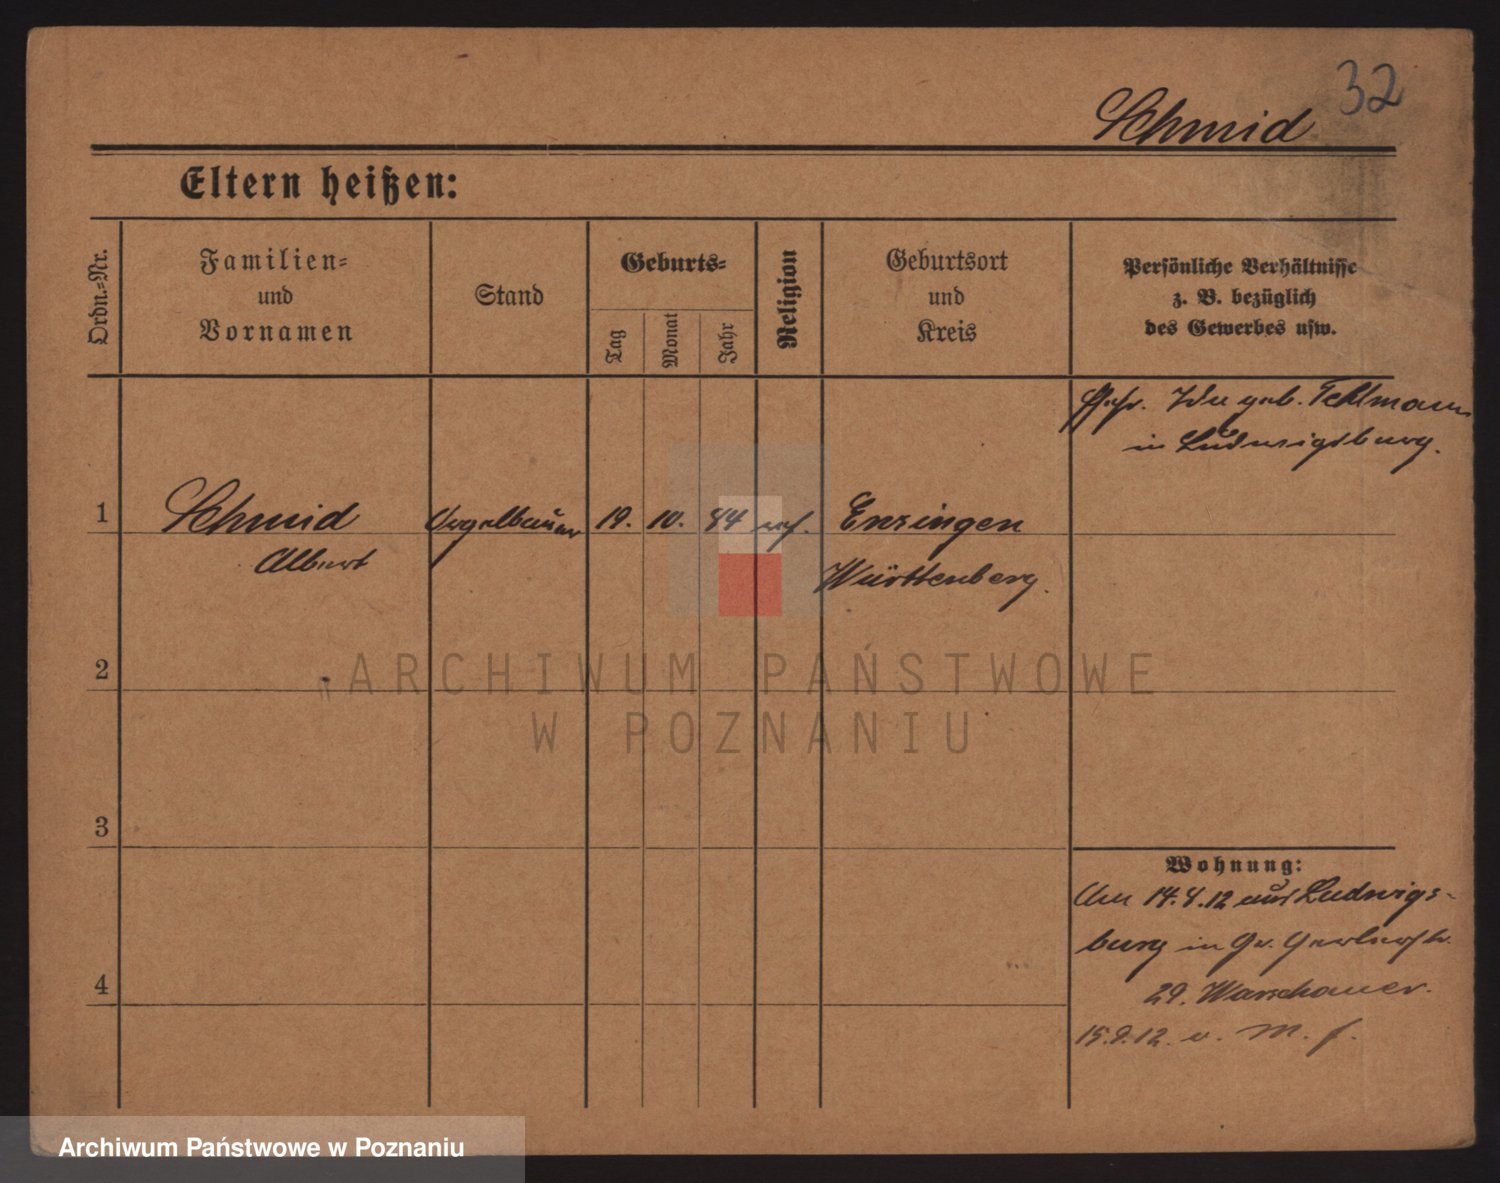 32
Schmid
Eltern heißen:
Ordn.-Nr.
Familien-
und
Vornamen
Stand
Geburts-
Tag
Monat
Jahr
Religion
Geburtsort
und
Kreis
Persönliche Verhältnisse
z. B. bezüglich
des Gewerbes usw.
geb.
in Ludwigsburg.
1
Schmid
Albert
Orgelbauer
19.
10.
84
Enzingen
Württenberg.
2
3
4
ARCHIWUM PAŃSTWOWE
W POZNANIU
Wohnung:
Am 14.4.12 aus Ludwigs-
burg in Gr. Gerberstr.
29. Warschauer.
15.9.12. v. M. f.
Archiwum Państwowe w Poznaniu